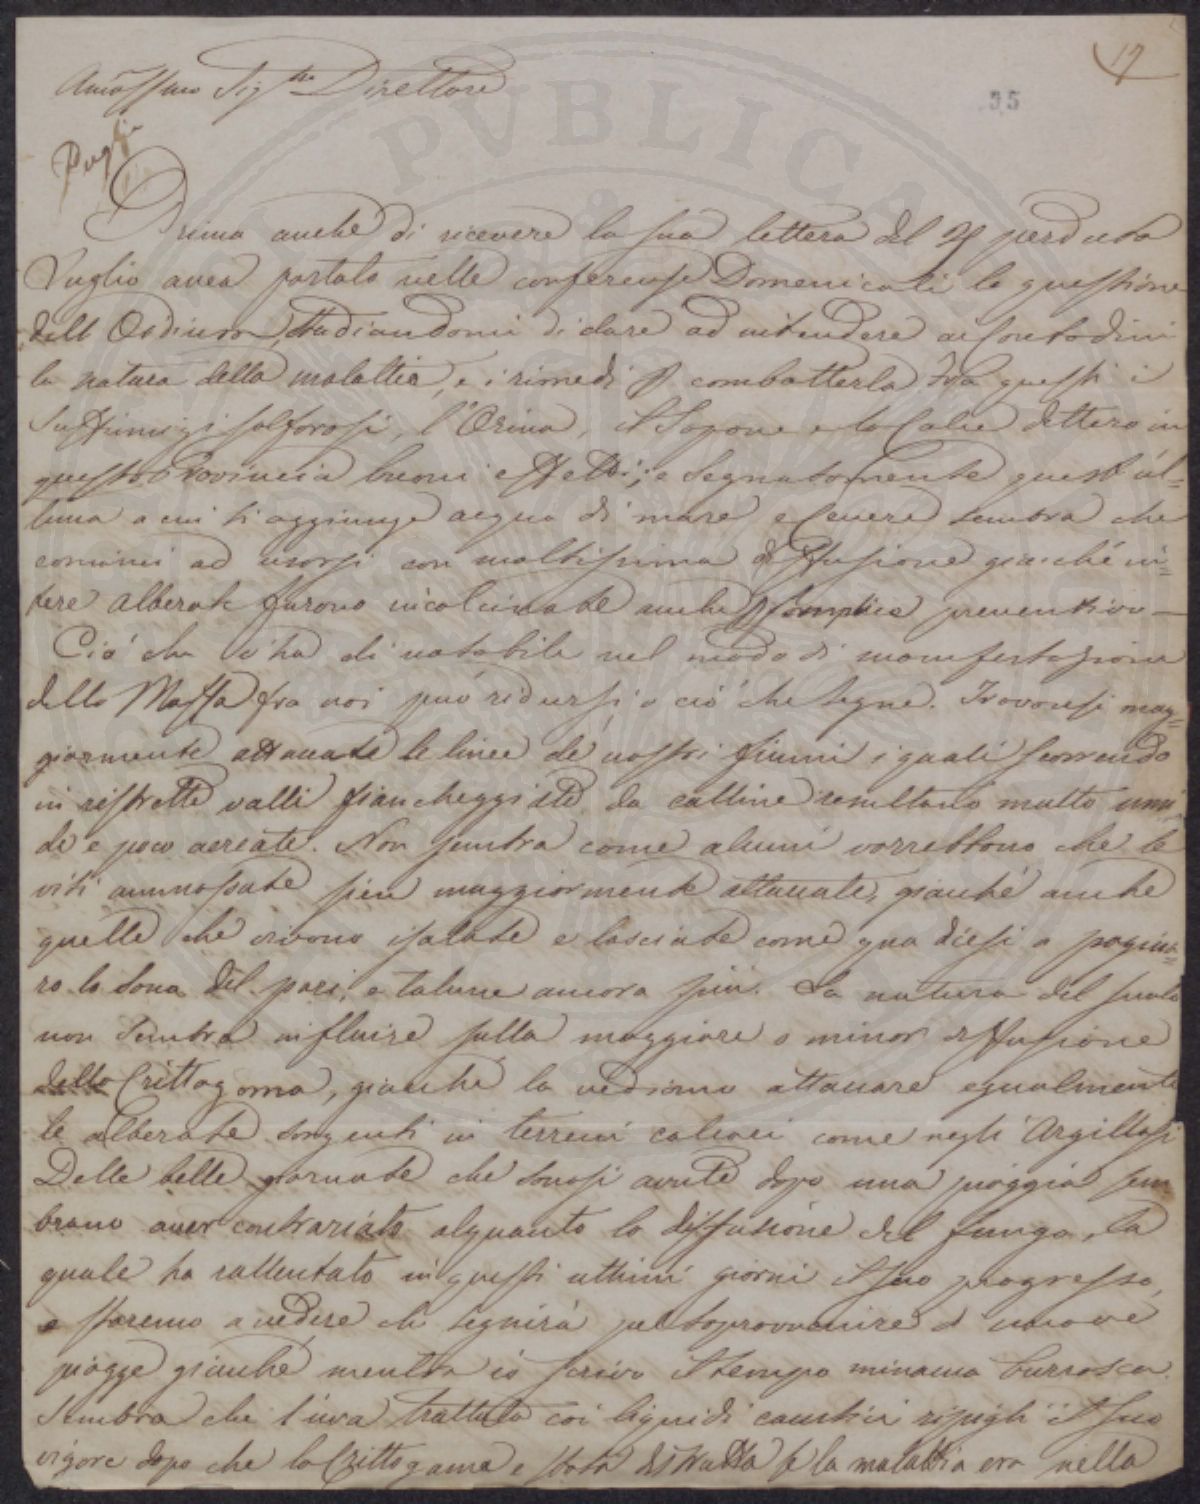 17
35
Amatissimo Sig.re Direttore
Puglia
Prima anche di ricevere la sua lettera del 29 perduto
Luglio avea portato nelle conferenze Domenicali la questione
dell'Oidium, studiandomi di dare ad intendere ai Contadini
la natura della malattia, e i rimedi p combatterla. Fra questi i
Suffumigi solforosi, l'Orina, il Sapone e la Calce dettero in
questa Provincia buoni effetti; e segnatamente quest'ul=
tima a cui si aggiunge acqua di mare e Cenere sembra che
cominci ad usarsi con moltissima diffusione giacché in=
tere alberate furono incalcinate anche p semplice preventivo —
Ciò che v'ha di notabile nel modo di manifestazione
della Maffa fra noi può ridursi a ciò che segue. Trovansi mag=
giormente attaccate le linee de' nostri fiumi i quali scorrendo
in ristrette valli fiancheggiate da colline resultano molto umi
de e poco aereate. Non sembra come alcuni vorrebbono che le
viti ammassate sieno maggiormente attaccate, giacché anche
quelle che vivono isolate e lasciate come qua diesi a
ro lo sono del pari, e talune ancora più. La natura del suolo
non sembra influire sulla maggiore o minor diffusione
della Crittogama, giacché la vediamo attaccare egualmente
le alberate sorgenti in terreni calcarei come negli Argillosi
Delle belle giornate che sonosi avute dopo una pioggia sem
brano aver contrariato alquanto la diffusione del fungo, la
quale ha rallentato in questi ultimi giorni il suo progresso,
e staremo a vedere che seguirà pel sopravvenire di nuove
piogge giacché mentre io scrivo il tempo minaccia burrasca.
Sembra che l'uva trattata coi liquidi caustici ripigli il suo
vigore dopo che la Crittogama e stata distrutta se la malattia era nella
PVBLICA